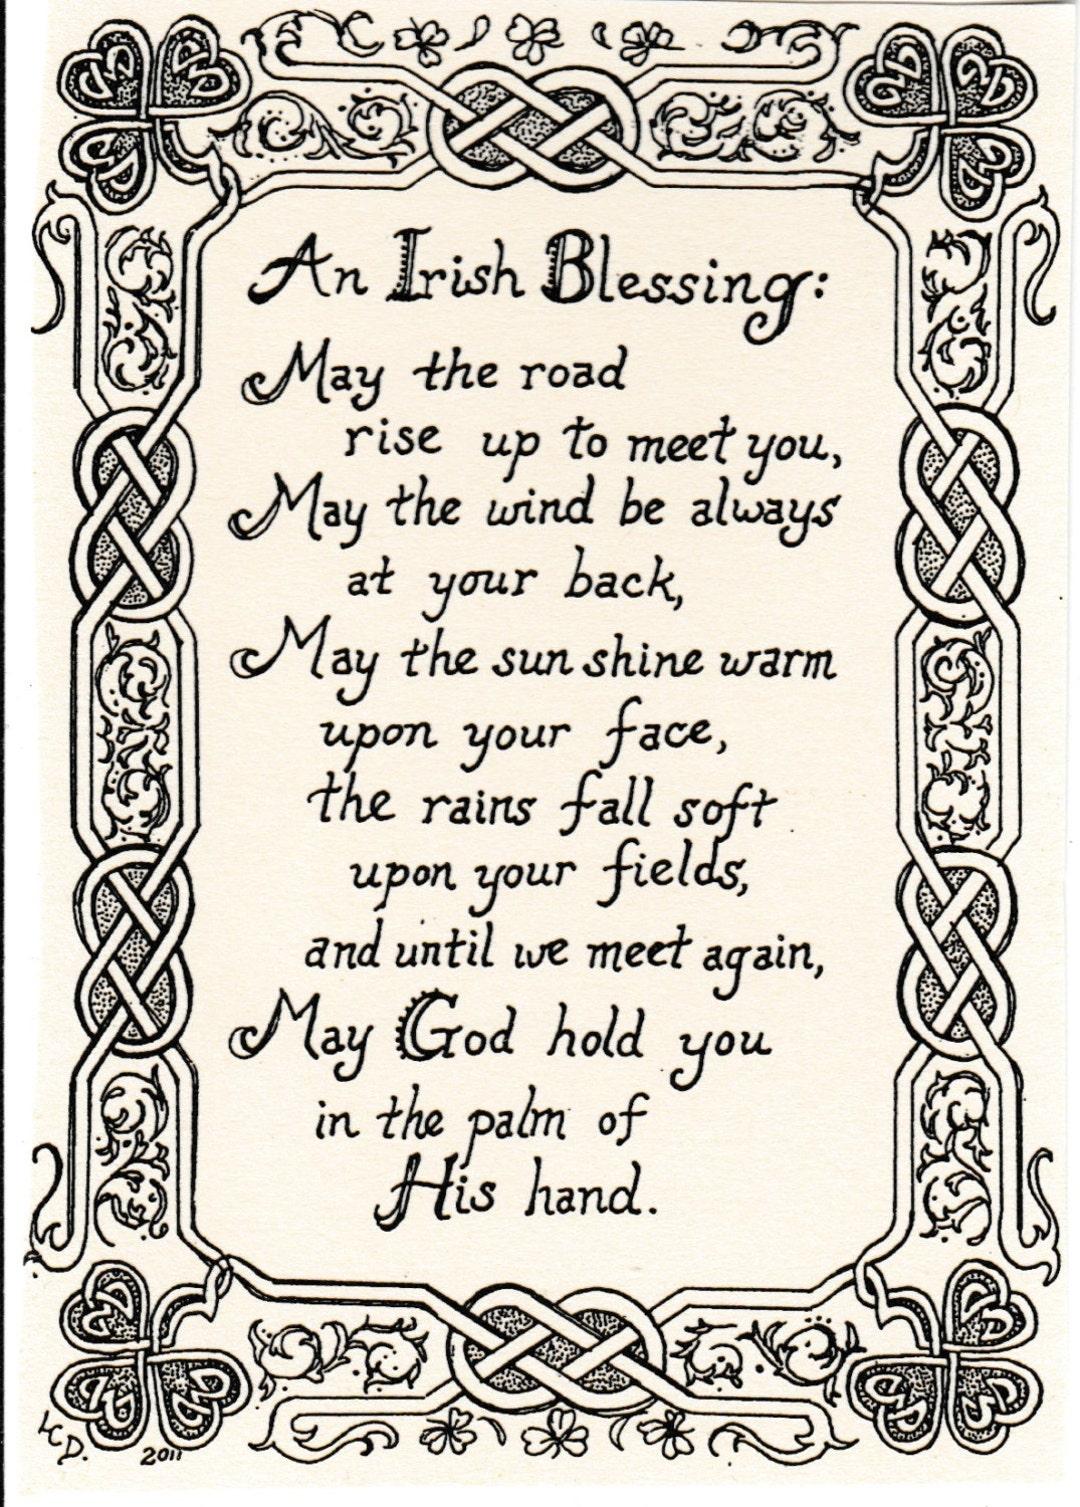 An Irish Blessing:
May the road
rise up to meet you,
May the wind be always
at your back,
May the sun shine warm
upon your face,
the rains fall soft
upon your fields,
and until we meet again,
May God hold you
in the palm of
His hand.
2011